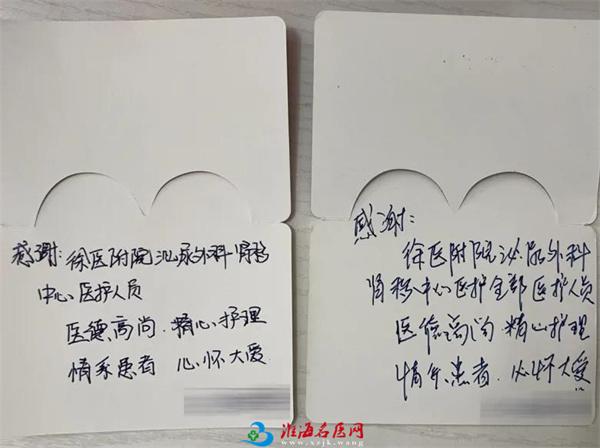 感谢:徐医附院泌尿外科肾移
中心医护人员
医德高尚.精心护理
情系患者 心怀大爱
感谢:
徐医附院泌尿外科
肾移中心医护全部医护人员
医德高尚 精心护理
情系患者.心怀大爱!!
淮海名医网
www.xzjk.wang